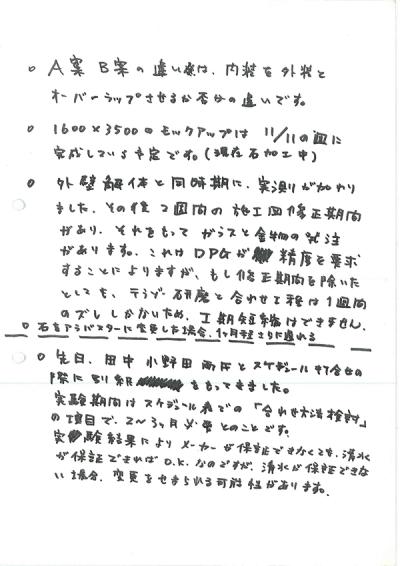 ○ A案 B案の違い点は、内装を外装と
オーバーラップさせるか否かの違いです。
○ 1600×3500のモックアップは 11/11の皿に
完成している予定です。(現在石加工中)
○ 外壁解体と同時期に、実測りが加わり
ました。その後2週間の施工図修正期間
があり、それをもってガラスと金物の発注
があります。これはDPGが 精度を要求
することによりますが、もし修正期間を除いた
としても、テラゾー研磨と合わせ工程は1週間
のズレしかないため、工期短縮はできません。
○ 石をアラバスターに変更した場合、1ヶ月程さらに遅れる
○ 先日、田中 小野田両氏とスケジュール打合せの
際に別紙 をもってきました。
実験期間はスケジュール表での「合わせ方法検討」
の項目で、2〜3ヶ月必要とのことです。
実験結果によりメーカーが保証できなくても、清水
が保証できればO.K.なのですが、清水が保証できな
い場合、変更をせまられる可能性があります。